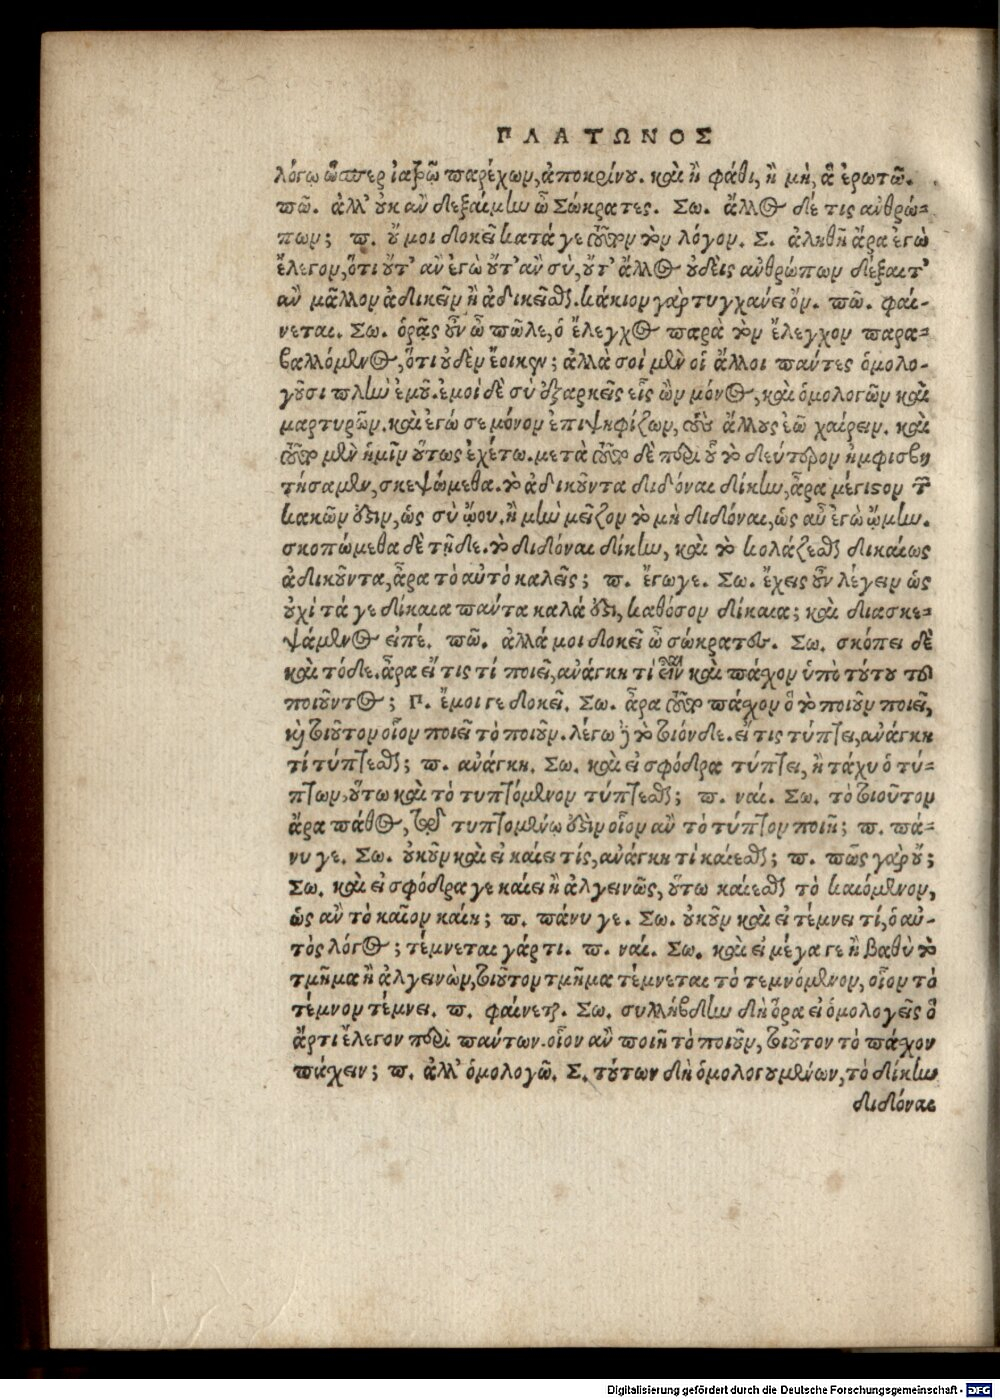 ΠΛΑΤΩΝΟΣ
λόγῳ ὥσπερ ἰατρῷ παρέχων, ἀποκρίνου. καὶ ἢ φάθι, ἢ μὴ, ἃ ἐρωτῶ.
πῶ. ἀλλ' οὐκ ἂν δεξαίμην ὦ Σώκρατες. Σω. ἄλλος δέ τις ἀνθρώ-
πων; π. οὔ μοι δοκεῖ κατά γε τοῦτον τὸν λόγον. Σ. ἀληθῆ ἄρα ἐγὼ
ἔλεγον, ὅτι οὔτ' ἂν ἐγὼ οὔτ' ἂν σὺ, οὔτ' ἄλλος οὐδεὶς ἀνθρώπων δέξαιτ'
ἂν μᾶλλον ἀδικεῖν ἢ ἀδικεῖσθαι. κάκιον γὰρ τυγχάνει ὄν. πῶ. φαί-
νεται. Σω. ὁρᾷς οὖν ὦ πῶλε, ὁ ἔλεγχος παρὰ τὸν ἔλεγχον παρα-
βαλλόμενος, ὅτι οὐδὲν ἔοικεν; ἀλλὰ σοὶ μὲν οἱ ἄλλοι πάντες ὁμολο-
γοῦσι πλὴν ἐμοῦ. ἐμοὶ δὲ σὺ ἐξαρκεῖς εἷς ὢν μόνος, καὶ ὁμολογῶν καὶ
μαρτυρῶν. καὶ ἐγώ σε μόνον ἐπιψηφίζων, τοὺς ἄλλους ἐῶ χαίρειν. καὶ
τοῦτο μὲν ἡμῖν οὕτως ἐχέτω. μετὰ τοῦτο δὲ περὶ οὗ τὸ δεύτερον ἠμφισβη
τήσαμεν, σκεψώμεθα. τὸ ἀδικοῦντα διδόναι δίκην, ἆρα μέγιστον τῶν
κακῶν ἐστιν, ὡς σὺ ᾤου. ἢ μὴν μεῖζον τὸ μὴ διδόναι, ὡς αὖ ἐγὼ ᾤμην.
σκοπώμεθα δὲ τῇδε. τὸ διδόναι δίκην, καὶ τὸ κολάζεσθαι δικαίως
ἀδικοῦντα, ἆρα τὸ αὐτὸ καλεῖς; π. ἔγωγε. Σω. ἔχεις οὖν λέγειν ὡς
οὐχὶ τά γε δίκαια πάντα καλά ἐστι, καθόσον δίκαια; καὶ διασκε-
ψάμενος εἰπέ. πῶ. ἀλλά μοι δοκεῖ ὦ σώκρατες. Σω. σκόπει δὲ
καὶ τόδε. ἆρα εἴ τις τί ποιεῖ, ἀνάγκη τί εἶναι καὶ πάσχον ὑπὸ τούτου τοῦ
ποιοῦντος; Π. ἔμοιγε δοκεῖ. Σω. ἆρα τοῦτο πάσχον ὃ τὸ ποιοῦν ποιεῖ,
καὶ τοιοῦτον οἷον ποιεῖ τὸ ποιοῦν. λέγω δὲ τὸ τοιόνδε. εἴ τις τύπτει, ἀνάγκη
τί τύπτεσθαι; π. ἀνάγκη. Σω. καὶ εἰ σφόδρα τύπτει, ἢ τάχυ ὁ τύ-
πτων, οὕτω καὶ τὸ τυπτόμενον τύπτεσθαι; π. ναί. Σω. τὸ τοιοῦτον
ἄρα πάθος, τοῦ τυπτομένῳ ἐστὶν οἷον ἂν τὸ τύπτον ποιῇ; π. πά-
νυ γε. Σω. οὐκοῦν καὶ εἰ καίει τίς, ἀνάγκη τί καίεσθαι; π. πῶς γὰρ οὔ;
Σω. καὶ εἰ σφόδρα γε καίει ἢ ἀλγεινῶς, οὕτω καίεσθαι τὸ καιόμενον,
ὡς ἂν τὸ καῖον καίῃ; π. πάνυ γε. Σω. οὐκοῦν καὶ εἰ τέμνει τί, ὁ αὐ-
τὸς λόγος; τέμνεται γάρ τι. π. ναί. Σω. καὶ εἰ μέγα γε ἢ βαθὺ τὸ
τμῆμα ἢ ἀλγεινὸν, τοιοῦτον τμῆμα τέμνεται τὸ τεμνόμενον, οἷον τὸ
τέμνον τέμνει. π. φαίνεται. Σω. συλλήβδην δὴ ὅρα εἰ ὁμολογεῖς ὃ
ἄρτι ἔλεγον περὶ πάντων. οἷον ἂν ποιῇ τὸ ποιοῦν, τοιοῦτον τὸ πάσχον
πάσχειν; π. ἀλλ' ὁμολογῶ. Σ. τούτων δὴ ὁμολογουμένων, τὸ δίκην
διδόναι
Digitalisierung gefördert durch die Deutsche Forschungsgemeinschaft - DFG